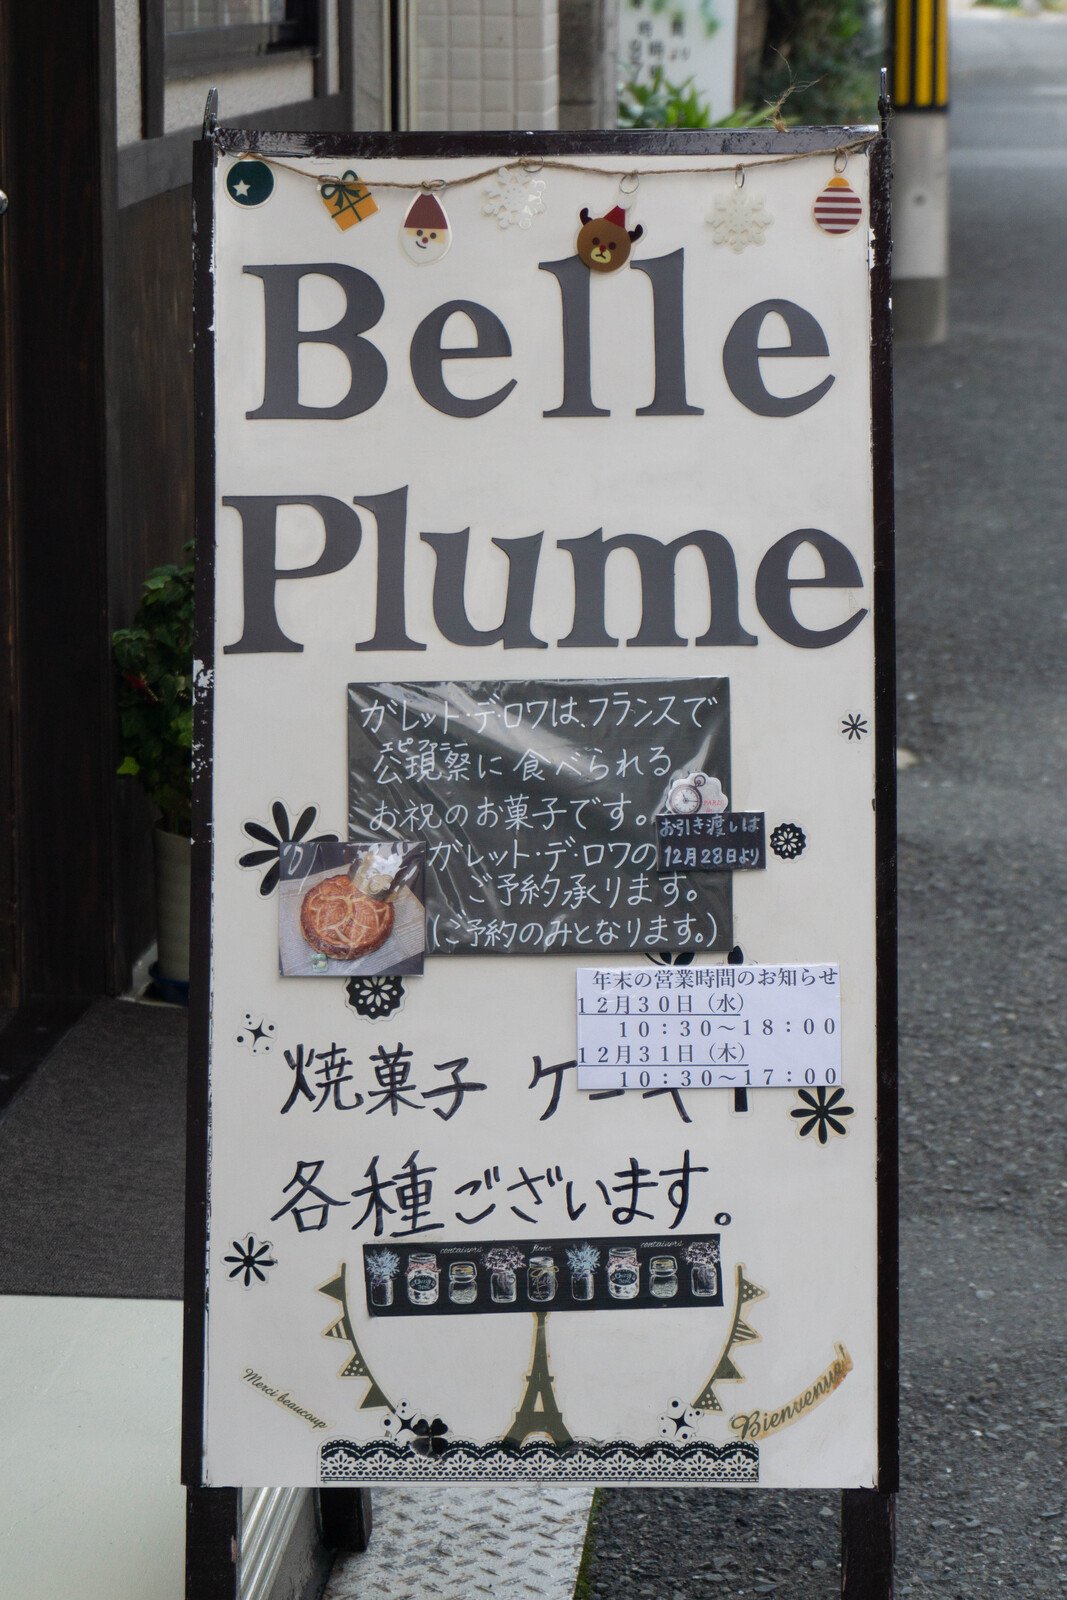 Belle
Plume
ガレット・デ・ロワは、フランスで
エピファニー
公現祭に食べられる
お祝のお菓子です。
ガレット・デ・ロワの
ご予約承ります。
(ご予約のみとなります。)
お引き渡しは
12月28日より
年末の営業時間のお知らせ
12月30日（水）
10：30～18：00
12月31日（木）
10：30～17：00
焼菓子 ケーキ
各種ございます。
containers
flower
containers
Merci beaucoup
Bienvenue!